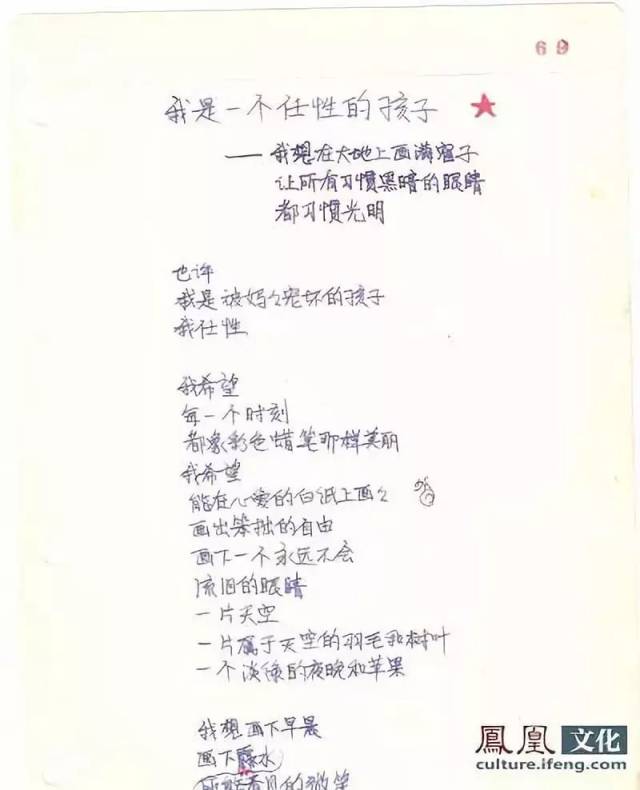 69
我是一个任性的孩子
——我想在大地上画满窗子
让所有习惯黑暗的眼睛
都习惯光明
也许
我是被妈々宠坏的孩子
我任性
我希望
每一个时刻
都象彩色蜡笔那样美丽
我希望
能在心爱的白纸上画々
画出笨拙的自由
画下一个永远不会
流泪的眼睛
一片天空
一片属于天空的羽毛和树叶
一个淡绿的夜晚和苹果
我想画下早晨
画下露水
所能看见的微笑
鳳凰 文化
culture.ifeng.com